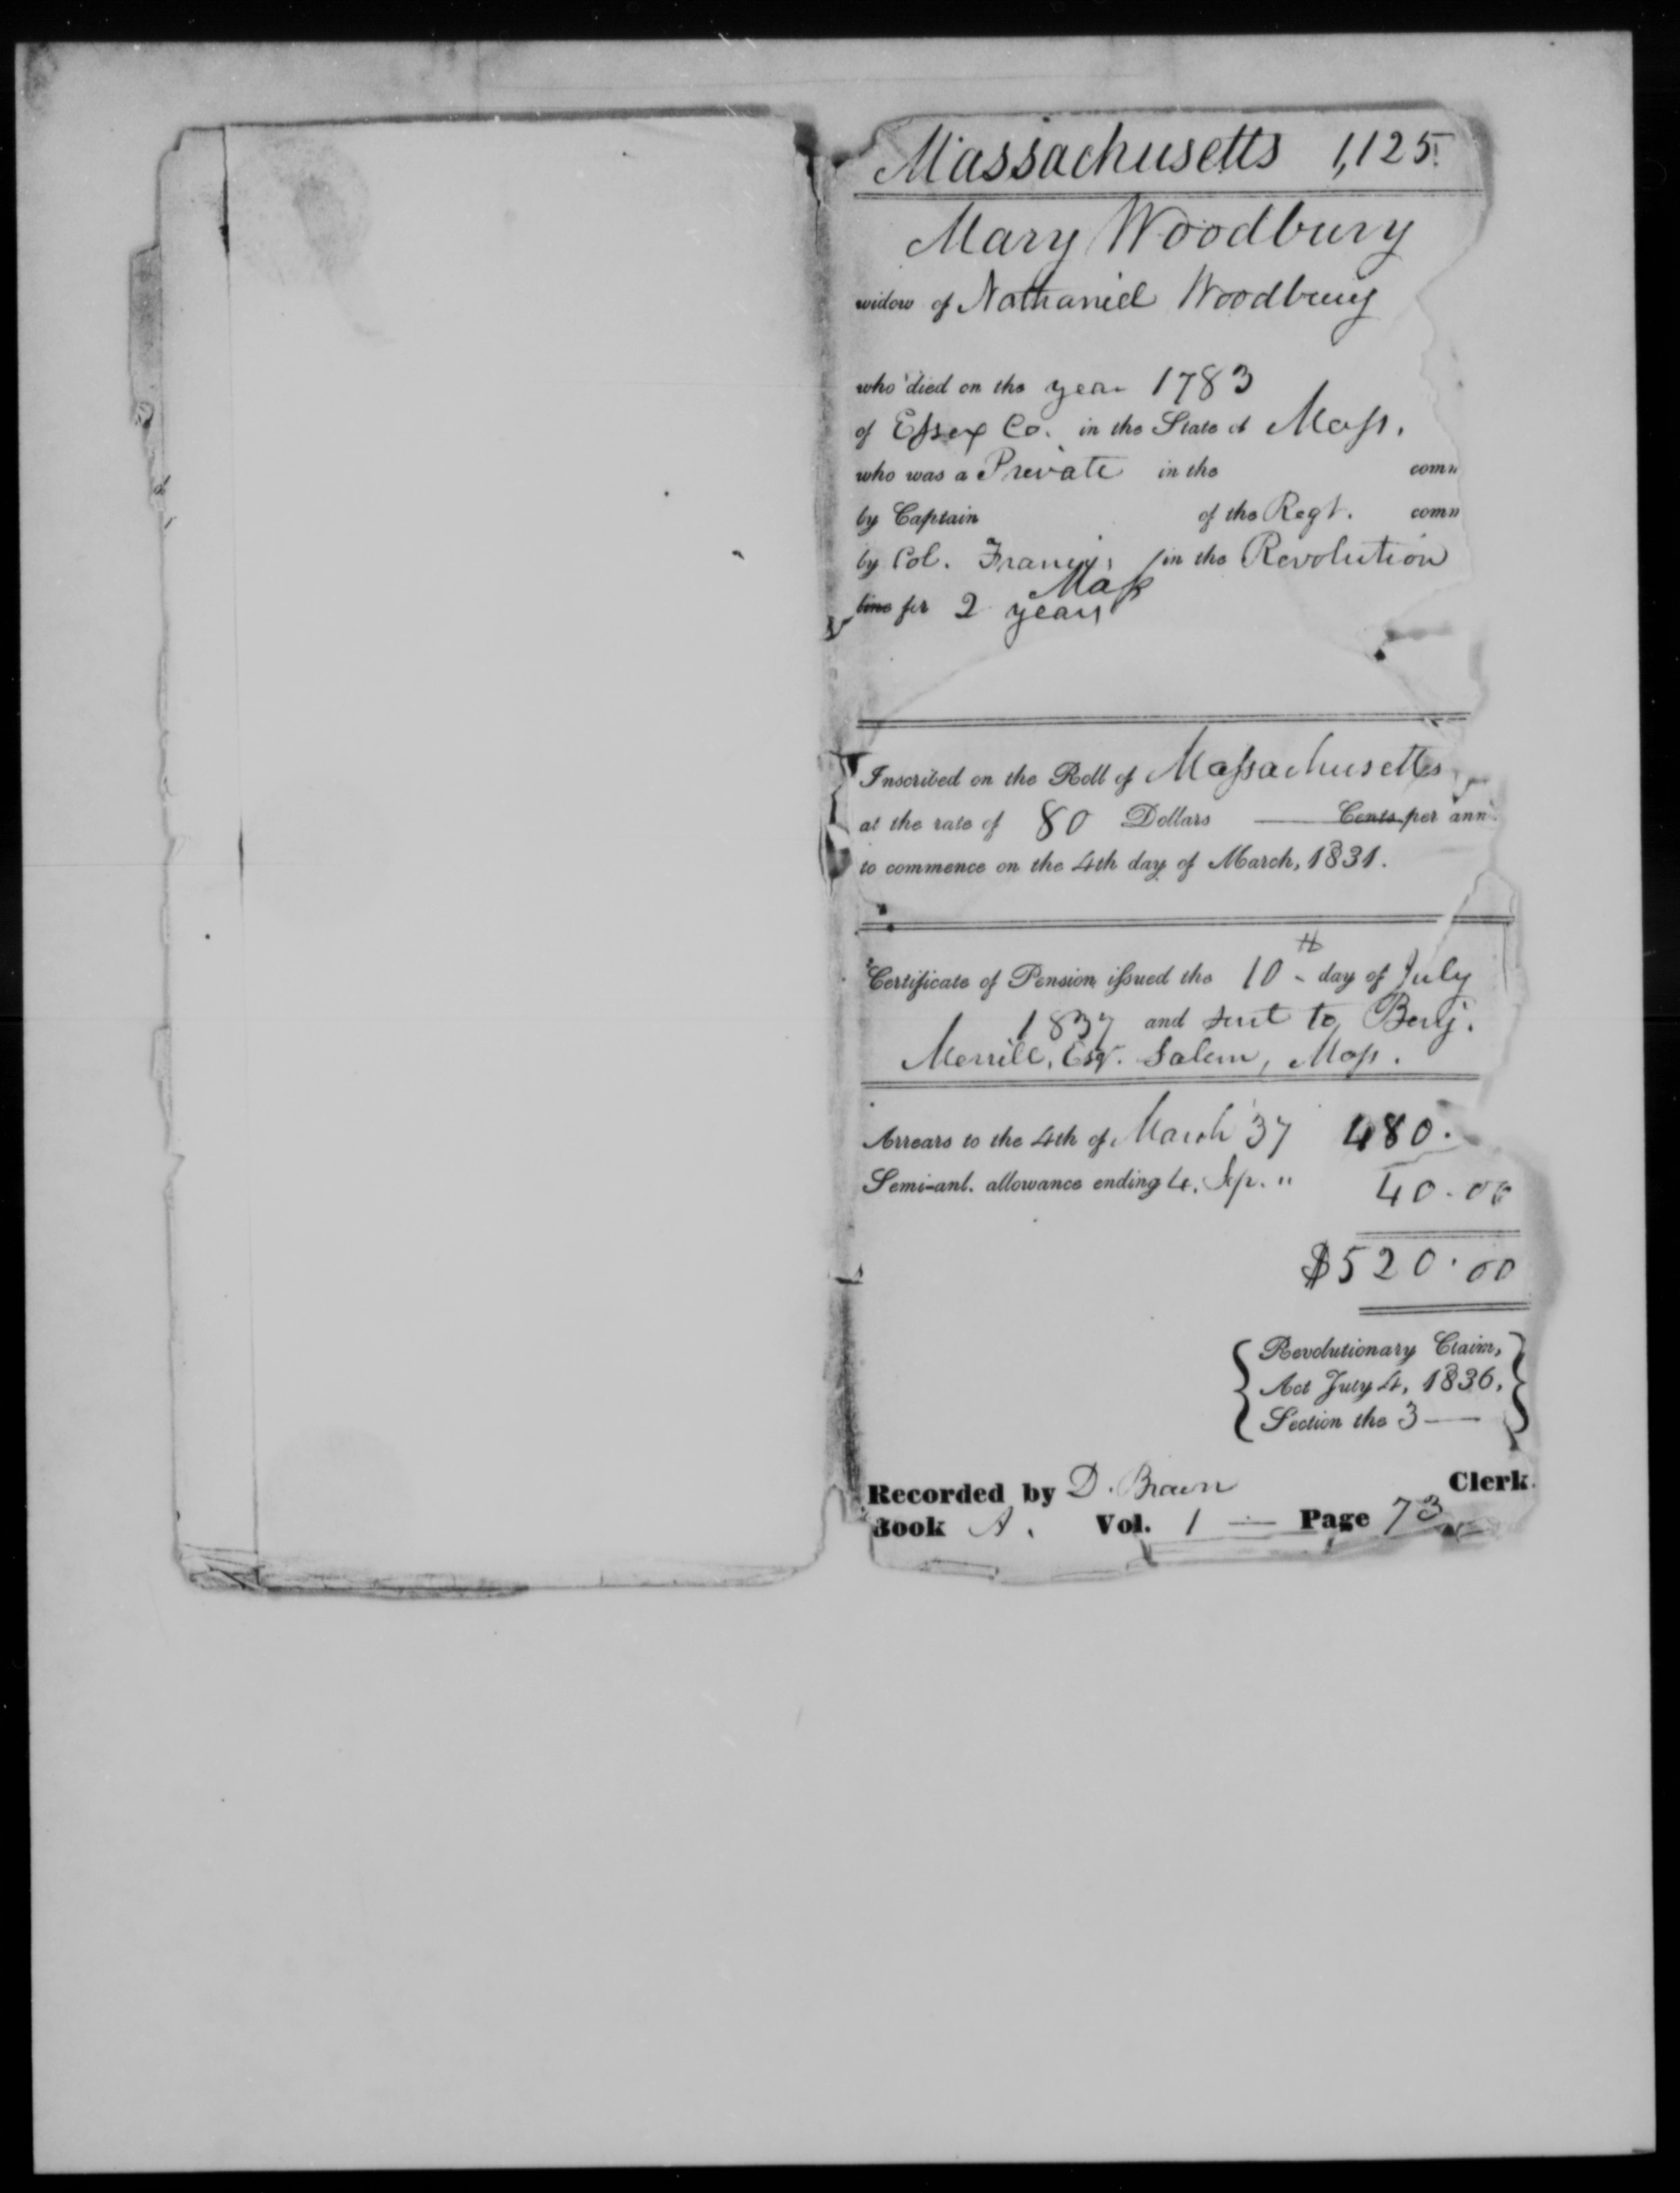 Massachusetts 1,125.
Mary Woodbury
widow of Nathaniel Woodbury
who died on the year 1783
of Essex Co. in the State of Mass.
who was a Private in the comn
by Captain of the Regt. comn
by Col. Francis, in the Revolution
Mass
line for 2 years
Inscribed on the Roll of Massachusetts
at the rate of 80 Dollars — Cents per ann
to commence on the 4th day of March, 1831.
Certificate of Pension issued the 10th day of July
1837 and sent to Benj.
Merrill, Esqr. Salem, Mass.
Arrears to the 4th of March '37 480.
Semi-anl. allowance ending 4, Sep. " 40.00
$520.00
Revolutionary Claim,
Act July 4, 1836,
Section the 3 —
Recorded by D. Brown Clerk.
Book A. Vol. 1 — Page 73